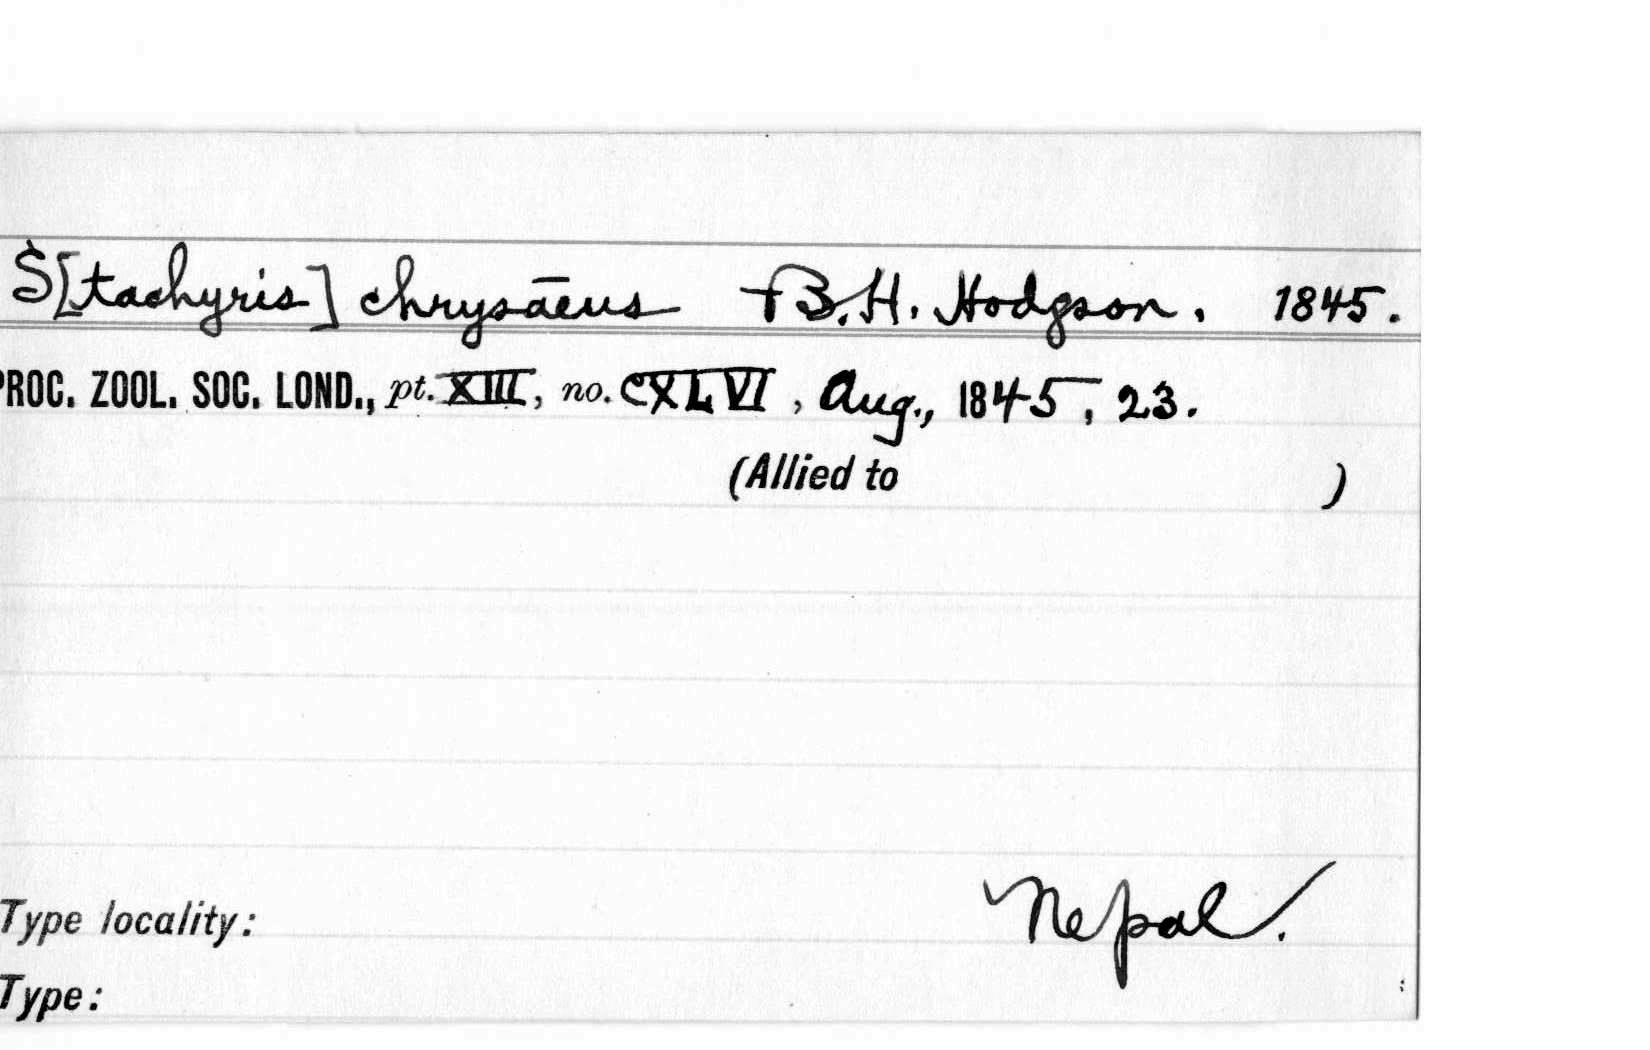 S[tachyris] chrysāeus †B.H. Hodgson. 1845.
PROC. ZOOL. SOC. LOND., pt. XIII, no. CXLVI, Aug., 1845, 23.
(Allied to )
Type locality: Nepal.
Type: